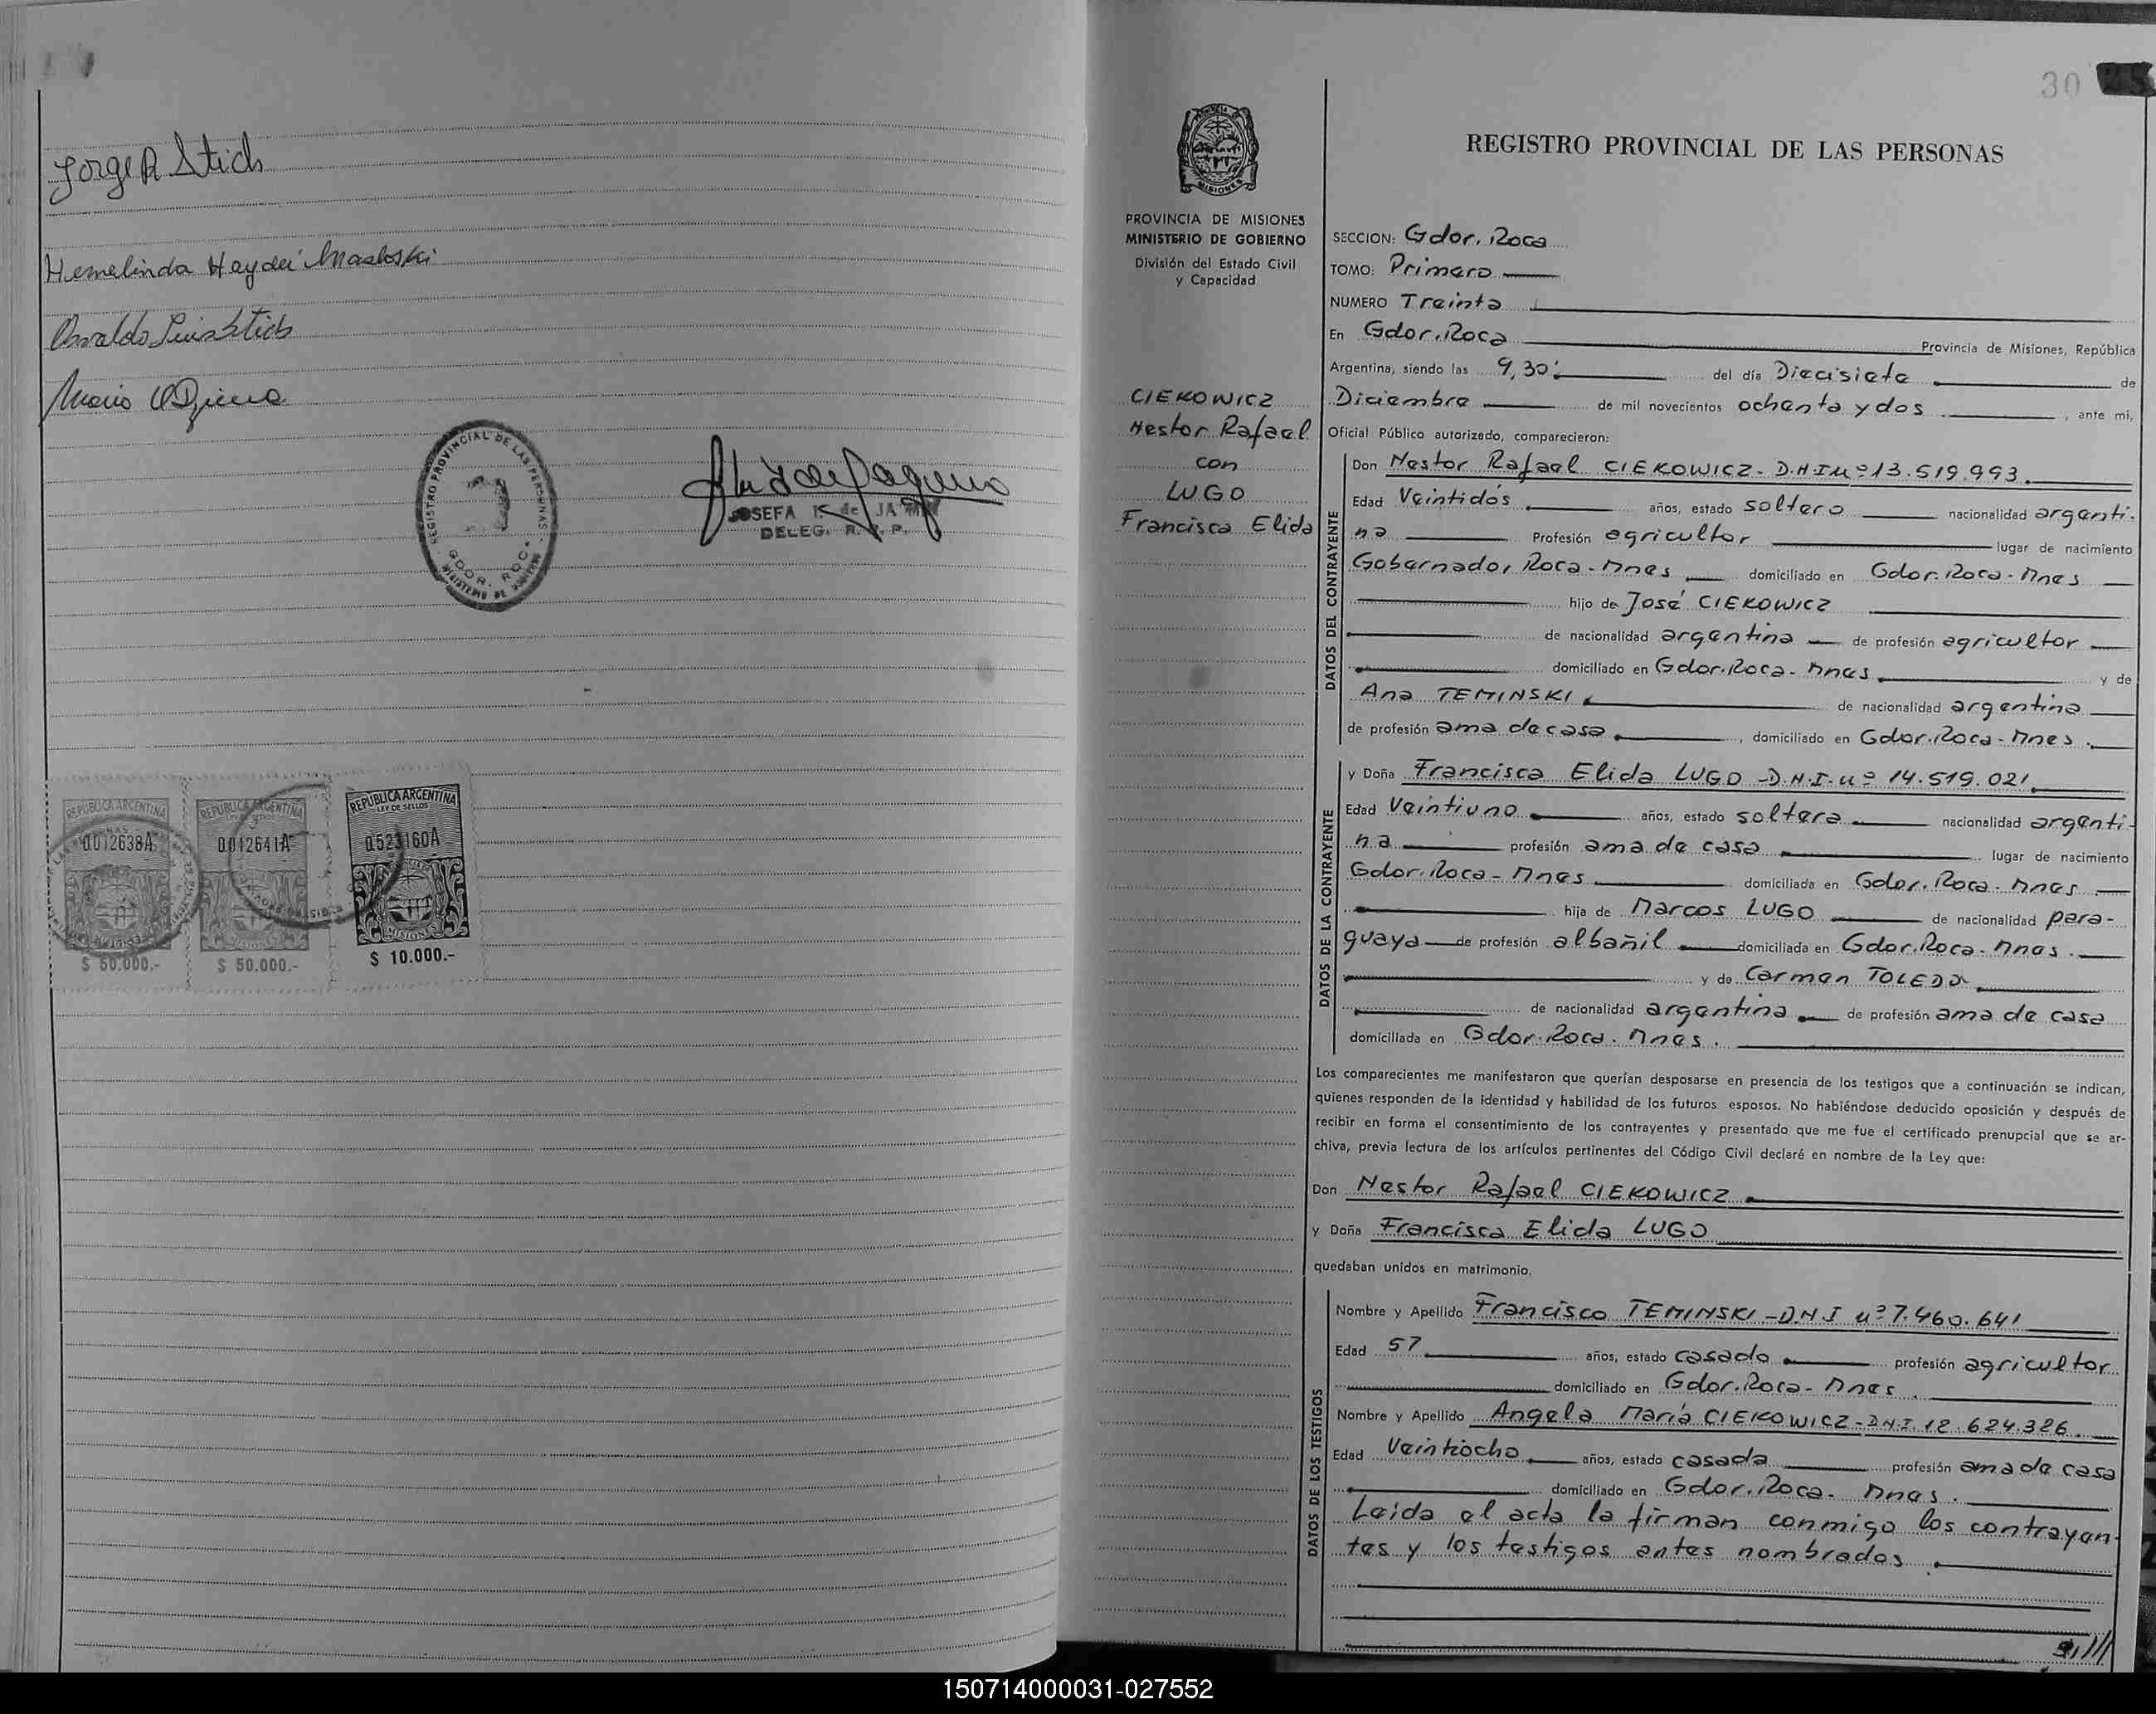 Jorge R Stich
Hemelinda Haydeé Masloski
Osvaldo Luis Stich
Mario
REGISTRO PROVINCIAL DE LAS PERSONAS
GDOR. ROCA
MINISTERIO DE GOBIERNO
JOSEFA K de
DELEG. R. P. P.
REPUBLICA ARGENTINA
0.012638A
$ 50.000.-
REPUBLICA ARGENTINA
LEY DE SELLOS
0.012641A
$ 50.000.-
REPUBLICA ARGENTINA
LEY DE SELLOS
0.523160A
MISIONES
$ 10.000.-
30
MISIONES
PROVINCIA DE MISIONES
MINISTERIO DE GOBIERNO
División del Estado Civil
y Capacidad
CIEKOWICZ
Nestor Rafael
con
LUGO
Francisca Elida
REGISTRO PROVINCIAL DE LAS PERSONAS
SECCION: Gdor. Roca
TOMO: Primero
NUMERO Treinta
En Gdor. Roca Provincia de Misiones, República
Argentina, siendo las 9,30 del día Diecisiete de
Diciembre de mil novecientos ochenta y dos, ante mí,
Oficial Público autorizado, comparecieron:
DATOS DEL CONTRAYENTE
Don Nestor Rafael CIEKOWICZ - D.N.I. nº 13.519.993.
Edad Veintidós años, estado soltero nacionalidad argenti-
na Profesión agricultor lugar de nacimiento
Gobernador Roca - Mnes domiciliado en Gdor. Roca - Mnes
hijo de José CIEKOWICZ
de nacionalidad argentina de profesión agricultor
domiciliado en Gdor. Roca - Mnes y de
Ana TEMINSKI de nacionalidad argentina
de profesión ama de casa, domiciliado en Gdor. Roca - Mnes.
DATOS DE LA CONTRAYENTE
y Doña Francisca Elida LUGO - D.N.I. nº 14.519.021
Edad Veintiuno años, estado soltera nacionalidad argenti-
na profesión ama de casa lugar de nacimiento
Gdor. Roca - Mnes domiciliada en Gdor. Roca - Mnes
hija de Marcos LUGO de nacionalidad para-
guaya de profesión albañil domiciliada en Gdor. Roca - Mnes.
y de Carmen TOLEDO
de nacionalidad argentina de profesión ama de casa
domiciliada en Gdor. Roca - Mnes.
Los comparecientes me manifestaron que querían desposarse en presencia de los testigos que a continuación se indican,
quienes responden de la identidad y habilidad de los futuros esposos. No habiéndose deducido oposición y después de
recibir en forma el consentimiento de los contrayentes y presentado que me fue el certificado prenupcial que se ar-
chiva, previa lectura de los artículos pertinentes del Código Civil declaré en nombre de la Ley que:
Don Nestor Rafael CIEKOWICZ
y Doña Francisca Elida LUGO
quedaban unidos en matrimonio.
DATOS DE LOS TESTIGOS
Nombre y Apellido Francisco TEMINSKI - D.N.I nº 7.460.641
Edad 57 años, estado casado profesión agricultor
domiciliado en Gdor. Roca - Mnes.
Nombre y Apellido Angela María CIEKOWICZ - D.N.I. 12.624.326.
Edad Veintiocho años, estado casada profesión ama de casa
domiciliado en Gdor. Roca - Mnes.
Leida el acta la firman conmigo los contrayen-
tes y los testigos antes nombrados.
150714000031-027552